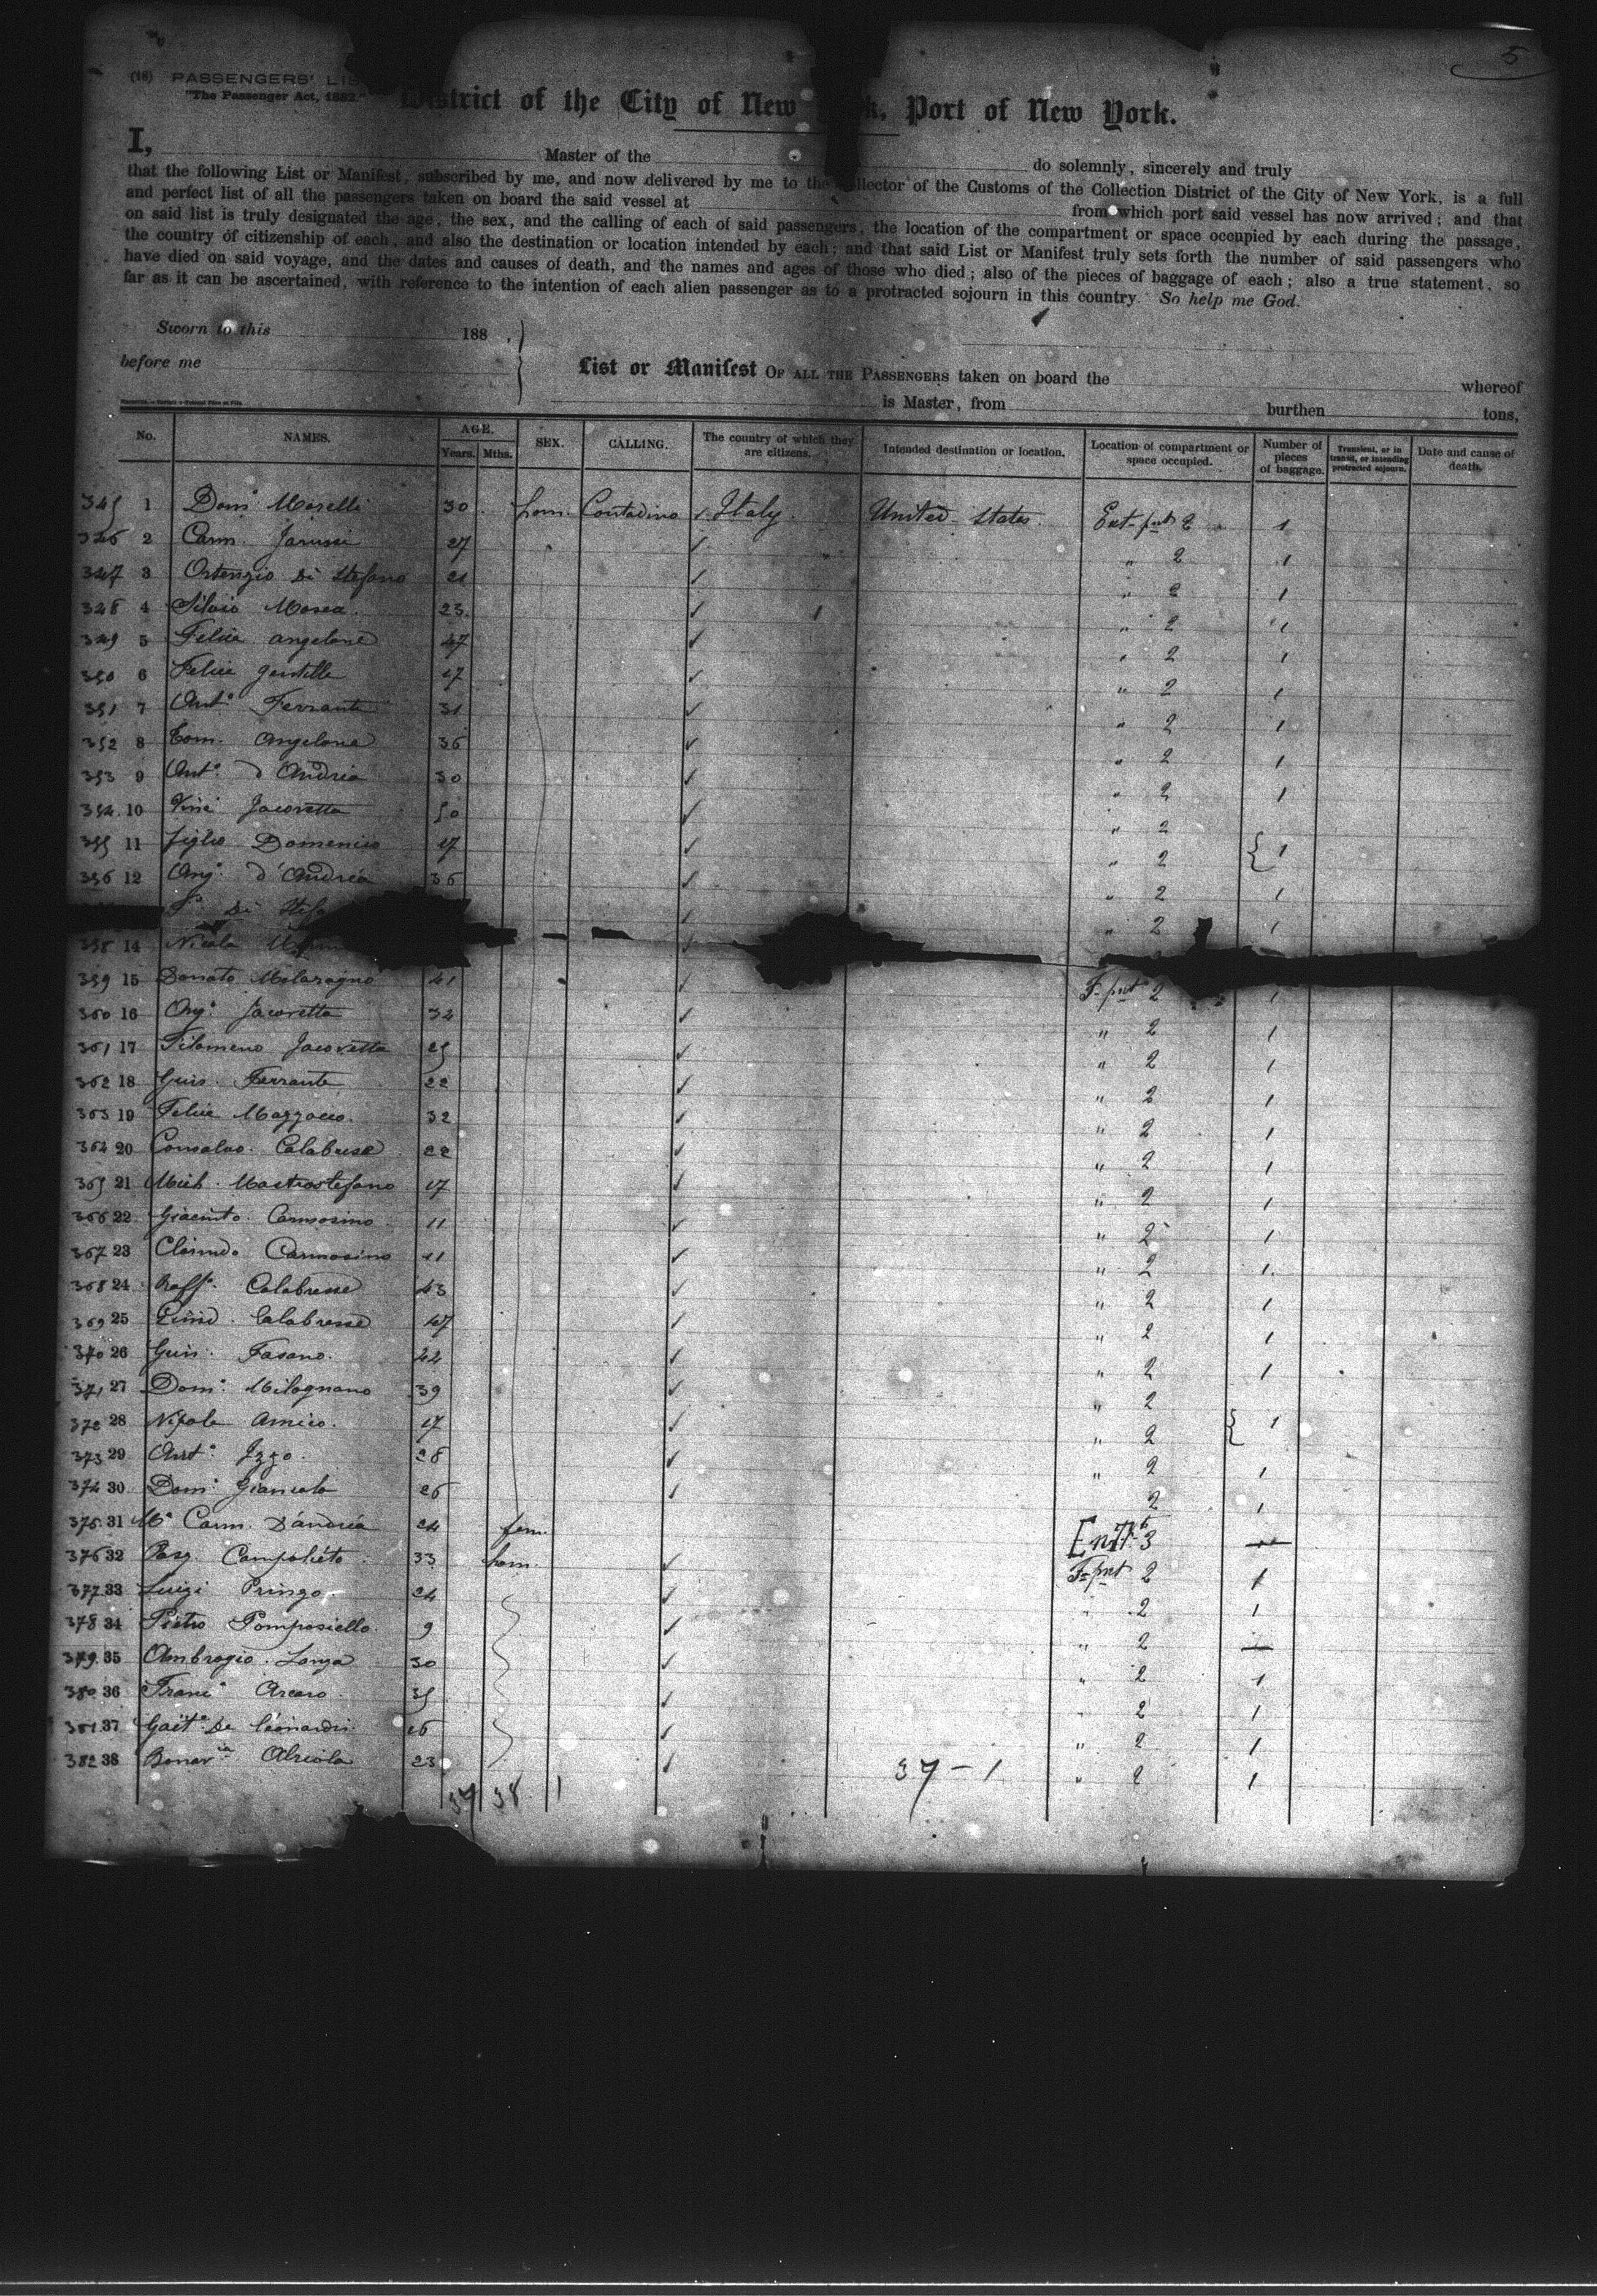 5
(18) PASSENGERS' LIS
"The Passenger Act, 1882."
District of the City of New k, Port of New York.
I, Master of the do solemnly, sincerely and truly
that the following List or Manifest, subscribed by me, and now delivered by me to the Collector of the Customs of the Collection District of the City of New York, is a full
and perfect list of all the passengers taken on board the said vessel at from which port said vessel has now arrived; and that
on said list is truly designated the age, the sex, and the calling of each of said passengers, the location of the compartment or space occupied by each during the passage,
the country of citizenship of each, and also the destination or location intended by each; and that said List or Manifest truly sets forth the number of said passengers who
have died on said voyage, and the dates and causes of death, and the names and ages of those who died; also of the pieces of baggage of each; also a true statement, so
far as it can be ascertained, with reference to the intention of each alien passenger as to a protracted sojourn in this country. So help me God.
Sworn to this 188 ,
before me
List or Manifest OF ALL THE PASSENGERS taken on board the whereof
is Master, from burthen tons,
No. NAMES. AGE. Years. Mths. SEX. CALLING. The country of which they are citizens. Intended destination or location. Location of compartment or space occupied. Number of pieces of baggage. Transient, or in transit, or intending protracted sojourn. Date and cause of death.
345 1 Domo Morelli 30 hom. Contadino Italy United States 2 1
346 2 Carm. 27 " 2 1
347 3 Ortenzio Di Stefano 21 " 2 1
348 4 Silvio Mosca 23 " 2 1
349 5 Felice Angelone 47 " 2 1
350 6 Felice Gentille 47 " 2 1
351 7 Anto Ferrante 31 " 2 1
352 8 Tom. Angelone 36 " 2 1
353 9 Anto d'Andrea 30 " 2 1
354 10 Jacovetta 50 " 2
355 11 figlio Domenico 17 " 2 1
356 12 Ango d'Andrea 36 " 2 1
Di Stefa " 2 1
358 14 Nicola
359 15 Donato 41 2 1
360 16 Ango Jacovetta 32 " 2 1
361 17 Filomeno Jacovetta 25 " 2 1
362 18 Gius. Ferrante 22 " 2 1
363 19 Felice Mazzocco 32 " 2 1
364 20 Consalvo Calabrese 22 " 2 1
365 21 Mich. Mastrostefano 17 " 2 1
366 22 Giacinto Carmosino 11 " 2 1
367 23 Carmosino 11 " 2 1
368 24 Raffo Calabrese 43 " 2 1
369 25 Calabrese 47 " 2 1
370 26 Gius. Fasano 42 " 2 1
371 27 Domo Milognano 39 " 2
372 28 Nipote Amico 17 " 2 1
373 29 Anto Izzo 28 " 2 1
374 30 Domo Giancola 26 2 1
375 31 Ma Carm. D'Andrea 24 fem. 3 —
376 32 Pasq. Campolieto 33 hom. 2 1
377 33 Luigi Pringo 24 " 2 1
378 34 Pietro Pomposiello 9 " 2 —
379 35 Ambrogio Lonza 30 " 2 1
380 36 Franco Arcaro 35 2 1
381 37 Gaeto De Leonardis 26 " 2 1
382 38 23 " 2 1
37 38 1
37 – 1